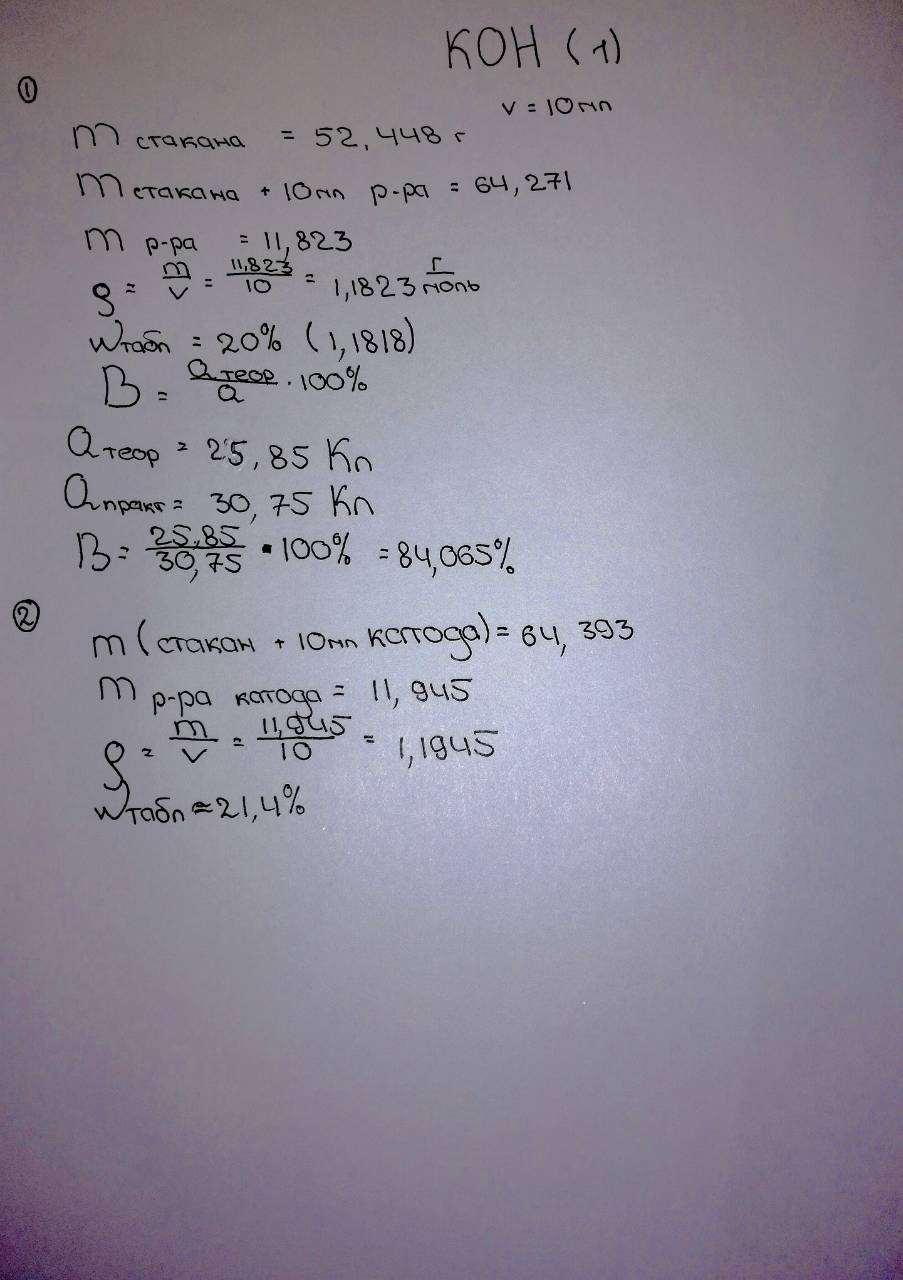 KOH (1)
①
V = 10 мл
m стакана = 52,448 г
m стакана + 10 мл р-ра = 64,271
m р-ра = 11,823
ρ = m/V = 11,823/10 = 1,1823 г/моль
Wтабл = 20% (1,1818)
B = Qтеор/Q · 100%
Qтеор = 25,85 Кл
Qпракт = 30,75 Кл
B = 25,85/30,75 · 100% = 84,065%
②
m (стакан + 10мл катода) = 64,393
m р-ра катода = 11,945
ρ = m/V = 11,945/10 = 1,1945
Wтабл ≈ 21,4%